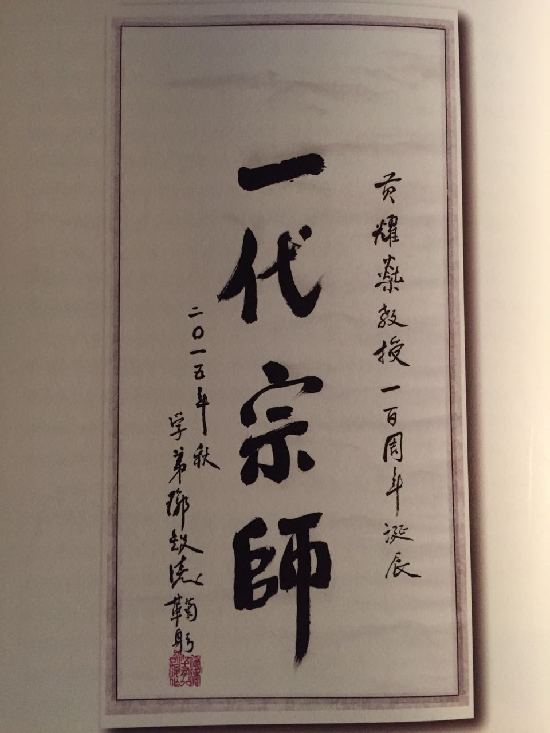 黄耀燊教授一百周年诞辰
一代宗師
二〇一五年秋
学弟鞠躬